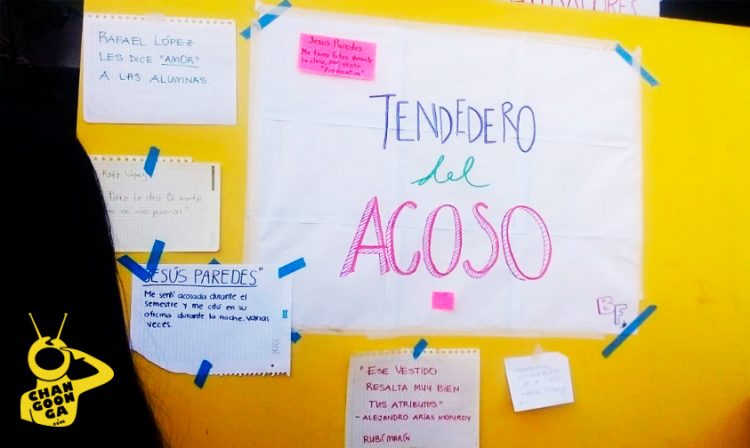 RAFAEL LÓPEZ
LES DICE "AMOR"
A LAS ALUMNAS
Jesus Paredes
Me toma fotos durante
la clase, por vestir
"Provocativa"
TENDEDERO
del
ACOSO
BF
Rafa López
"JESÚS PAREDES"
Me sentí acosada durante el
semestre y me citó en su
oficina durante la noche, varias
veces.
"ESE VESTIDO
RESALTA MUY BIEN
TUS ATRIBUTOS"
- ALEJANDRO ARIAS MONROY
RUBÍ MARÍN
CHAN
GOON
GA
.COM